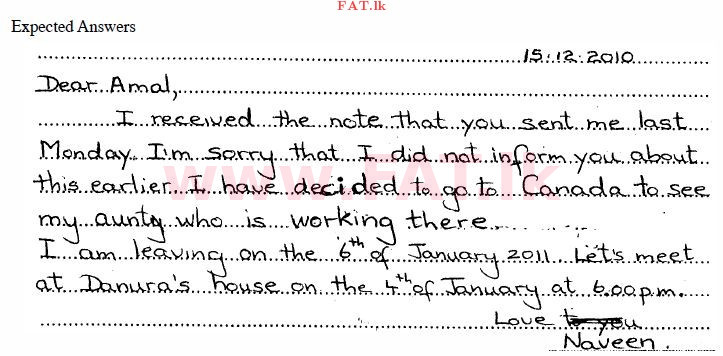 FAT.lk
Expected Answers
15.12.2010
Dear Amal,
I received the note that you sent me last
Monday. I'm sorry that I did not inform you about
this earlier. I have decided to go to Canada to see
my aunty who is working there.
I am leaving on the 6th of January 2011. Let's meet
at Danura's house on the 4th of January at 6.00p.m.
Love to you
Naveen.
www.FAT.lk